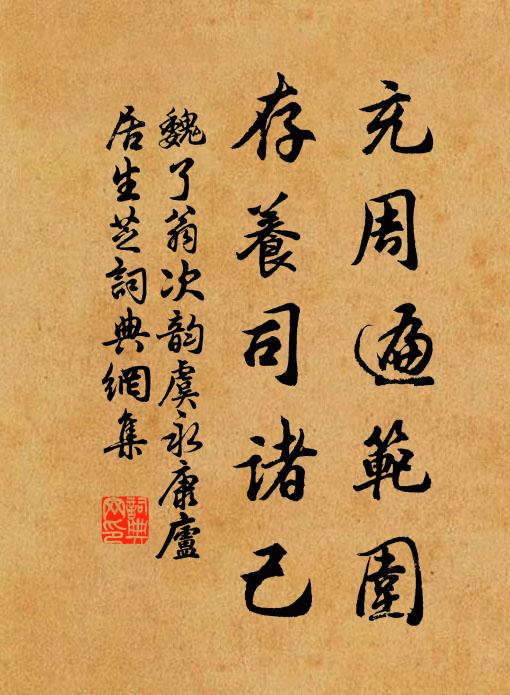 充周遍範圍
存養司諸己
魏了翁次韵虞永康廬
居生芝詞典網集
詞典网印